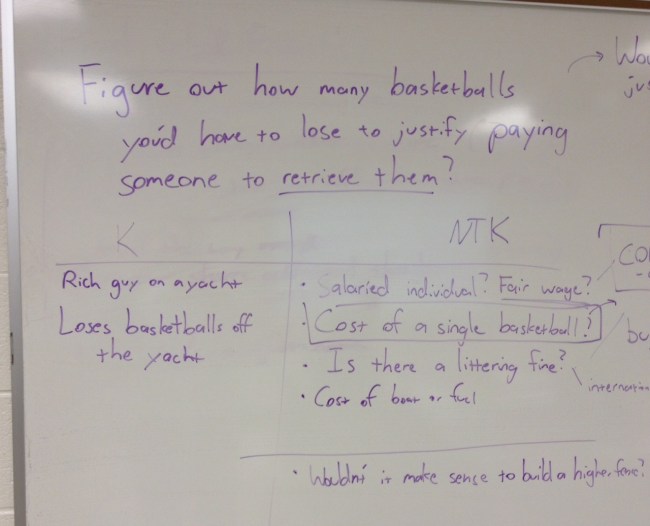 Figure out how many basketballs
you'd have to lose to justify paying
someone to retrieve them?
K
Rich guy on a yacht
Loses basketballs off
the yacht
NTK
· Salaried individual? Fair wage?
· Cost of a single basketball?
· Is there a littering fine?
· Cost of boat or fuel
· Wouldn't it make sense to build a higher fence?
→ Wou
jus
CO
bu
internation